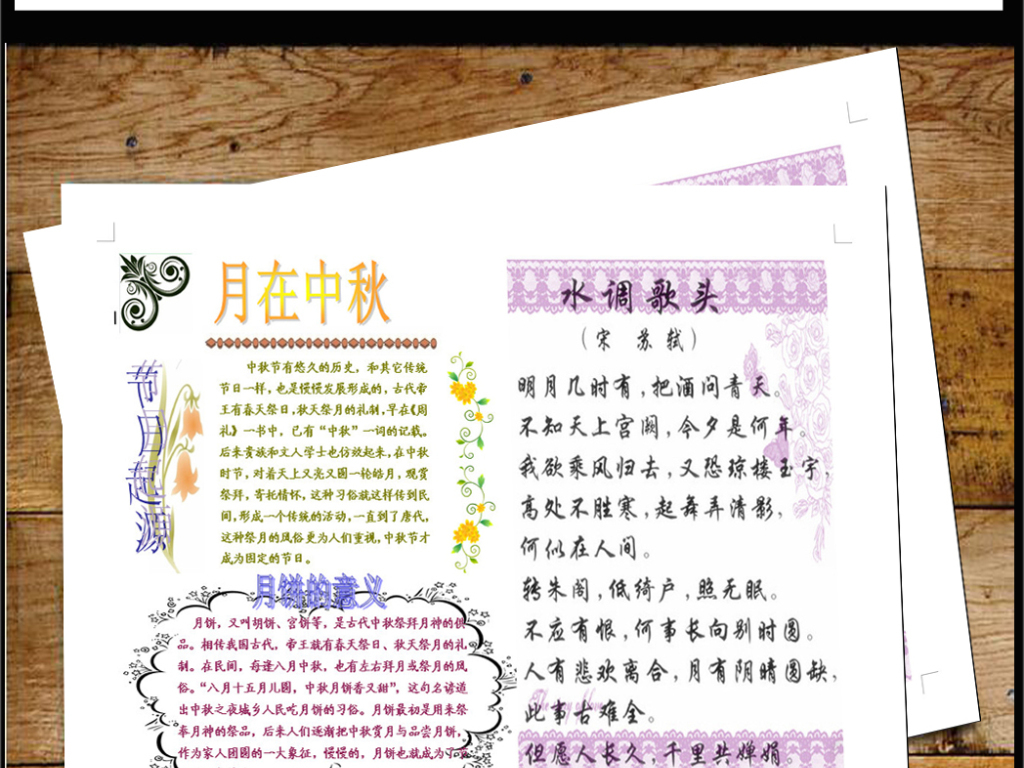 月在中秋
节日起源
中秋节有悠久的历史，和其它传统
节日一样，也是慢慢发展形成的，古代帝
王有春天祭日，秋天祭月的礼制，早在《周
礼》一书中，已有“中秋”一词的记载。
后来贵族和文人学士也仿效起来，在中秋
时节，对着天上又亮又圆一轮皓月，观赏
祭拜，寄托情怀，这种习俗就这样传到民
间，形成一个传统的活动，一直到了唐代，
这种祭月的风俗更为人们重视，中秋节才
成为固定的节日。
月饼的意义
月饼，又叫胡饼、宫饼等，是古代中秋祭拜月神的供
品。相传我国古代，帝王就有春天祭日、秋天祭月的礼
制。在民间，每逢八月中秋，也有左右拜月或祭月的风
俗。“八月十五月儿圆，中秋月饼香又甜”，这句名谚道
出中秋之夜城乡人民吃月饼的习俗。月饼最初是用来祭
奉月神的祭品，后来人们逐渐把中秋赏月与品尝月饼，
作为家人团圆的一大象征，慢慢的，月饼也就成为了
水调歌头
（宋 苏轼）
明月几时有，把酒问青天。
不知天上宫阙，今夕是何年。
我欲乘风归去，又恐琼楼玉宇，
高处不胜寒，起舞弄清影，
何似在人间。
转朱阁，低绮户，照无眠。
不应有恨，何事长向别时圆。
人有悲欢离合，月有阴晴圆缺，
此事古难全。
但愿人长久，千里共婵娟。